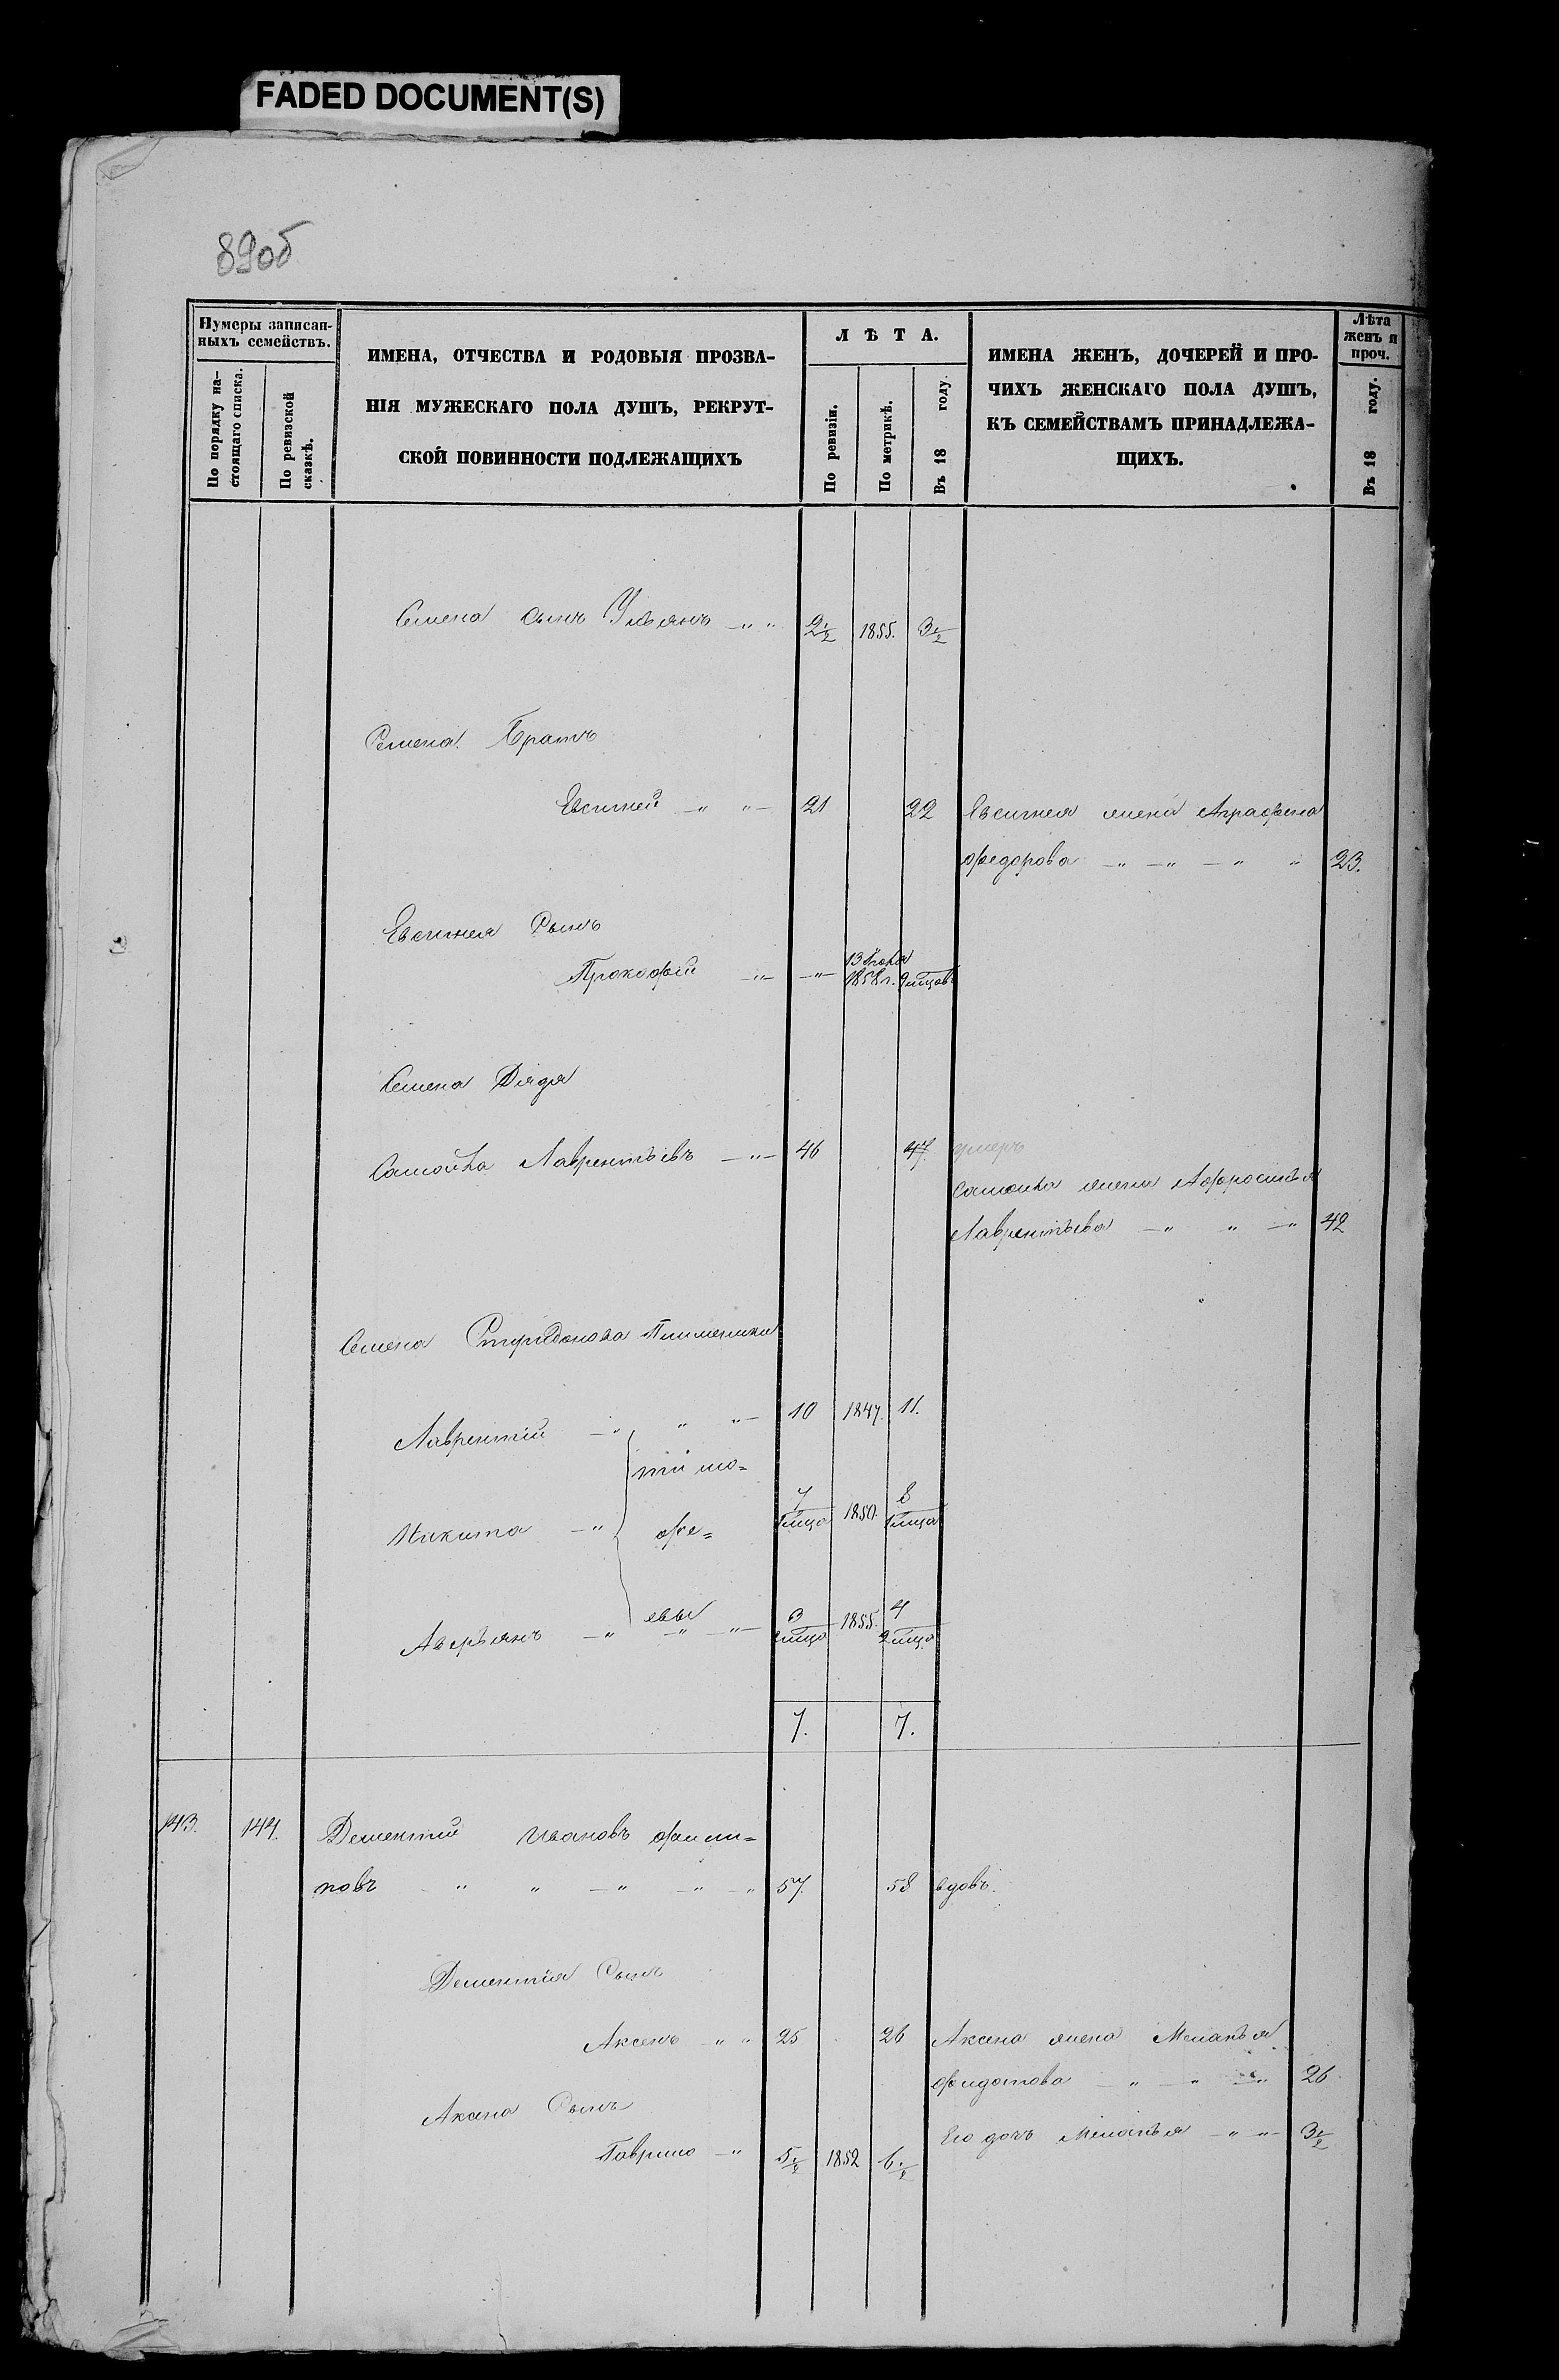 FADED DOCUMENT(S)
89об
Нумеры записан-
ныхъ семействъ.
По порядку на-
стоящаго списка.
По ревизской
сказкѣ.
ИМЕНА, ОТЧЕСТВА И РОДОВЫЯ ПРОЗВА-
НІЯ МУЖЕСКАГО ПОЛА ДУШЪ, РЕКРУТ-
СКОЙ ПОВИННОСТИ ПОДЛЕЖАЩИХЪ
ЛѢТА.
По ревизіи.
По метрикѣ.
Въ 18 году.
ИМЕНА ЖЕНЪ, ДОЧЕРЕЙ И ПРО-
ЧИХЪ ЖЕНСКАГО ПОЛА ДУШЪ,
КЪ СЕМЕЙСТВАМЪ ПРИНАДЛЕЖА-
ЩИХЪ.
Лѣта
женъ и
проч.
Въ 18 году.
Семена сынъ Ульянъ — " " 2½ 1855. 3½
Семена Братъ
Евсигней — " " — 21 22 Евсигнея жена Аграфена
Федорова — " — " — " " 23.
Евсигнея Сынъ
Прокофій — " — — " — 13 1858г.
Семена Дядя
Самойла Лаврентьевъ — " — 46 47 умеръ
Самойла жена Афросинья
Лаврентьева — " " — " 42
Семена Спиридонова Племянники
Лаврентій — " " " — 10 1847. 11.
Тимо=
Никита — " фе= 7 1мца 1850. 8 1мца
евы
Аверьянъ — " — " — " — 3 2мца 1855. 4 2мца
7. 7.
143. 144. Дементий Ивановъ Филип=
повъ " " — " — " — " 57. 58 вдовъ.
Дементія Сынъ
Аксенъ — " " 25 26 Аксена жена Меланья
Федотова — " — " — " 26
Аксена Сынъ
Его дочь Меланья — " " — 3½
Гаврило — " 5½ 1852 6½